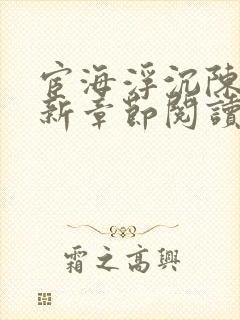 宦海浮沉陳
新章節閱讀
霜之高興